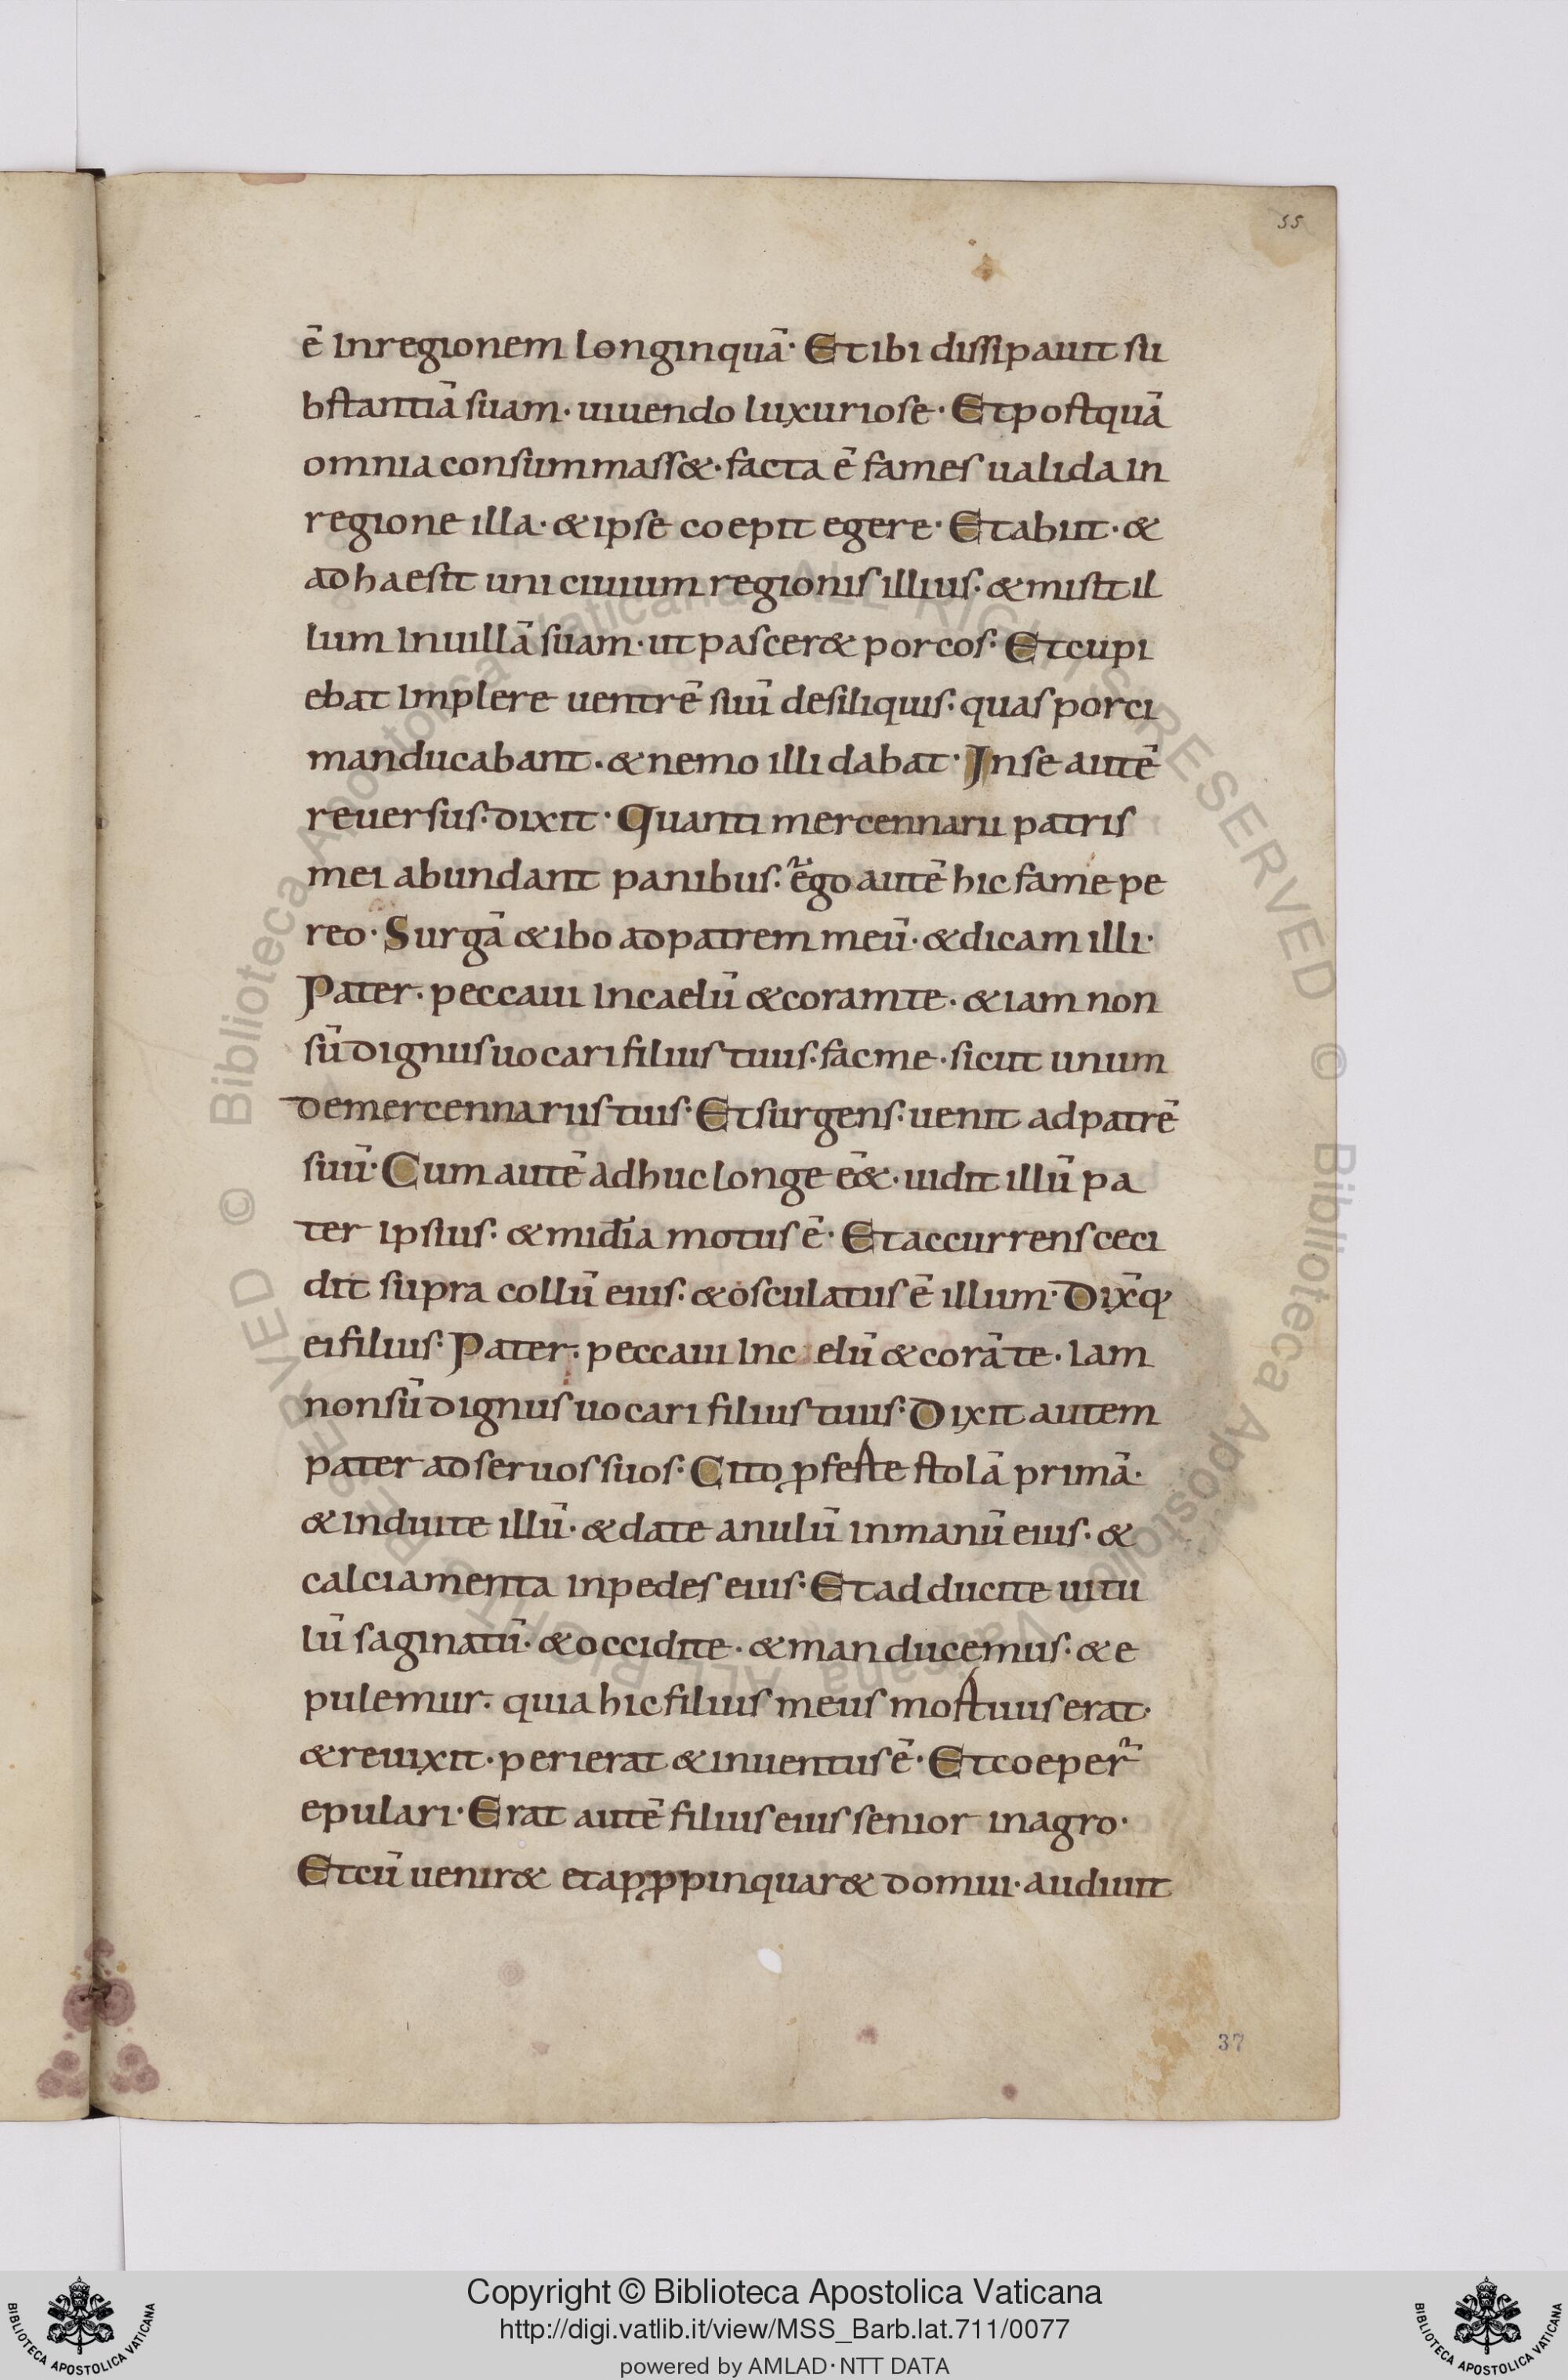 55
ē Inregionem longinquā· Et ibi dissipauit su
bstantiā suam· uiuendo luxuriose· Et postquā
omnia consummass&· facta ē fames ualida In
regione illa· & ipse coepit egere· Et abiit· &
adhaesit uni ciuium regionis illius· & misit il
lum Inuillā suam· ut pascer& porcos· Et cupi
ebat Implere uentrē suū desiliquis· quas porci
manducabant· & nemo illi dabat· Inse autē
reuersus· dixit· Quanti mercennarii patris
mei abundant panibus· ego autē hic fame pe
reo· Surgā & ibo adpatrem meū· & dicam illi·
Pater· peccaui Incaelū & coramte· & iam non
sū dignus uocari filius tuus· facme· sicut unum
demercennariis tuis· Et surgens· uenit adpatrē
suū· Cum autē adhuc longe eē&· uidit illū pa
ter Ipsius· & mīdia motus ē· Et accurrens ceci
dit supra collū eius· & osculatus ē illum· Dix̄q·
ei filius· Pater· peccaui Inc elū & corā te· Iam
non sū dignus uocari filius tuus· Dixit autem
pater ad seruos suos· Cito ꝓferte stolā primā·
& Induite illū· & date anulū inmanū eius· &
calciamenta inpedes eius· Et adducite uitu
lū saginatū· & occidite· & manducemus· & e
pulemur· quia hic filius meus mortuus erat·
& reuixit· perierat & inuentus ē· Et coeper̄
epulari· Erat autē filius eius senior inagro·
Et cū uenir& et apꝓpinquar& domui· audiuit
37
© Biblioteca Apostolica Vaticana ALL RIGHTS RESERVED
© Biblioteca Apostolica Vaticana ALL RIGHTS RESERVED
Copyright © Biblioteca Apostolica Vaticana
http://digi.vatlib.it/view/MSS_Barb.lat.711/0077
powered by AMLAD·NTT DATA
BIBLIOTECA APOSTOLICA VATICANA
BIBLIOTECA APOSTOLICA VATICANA